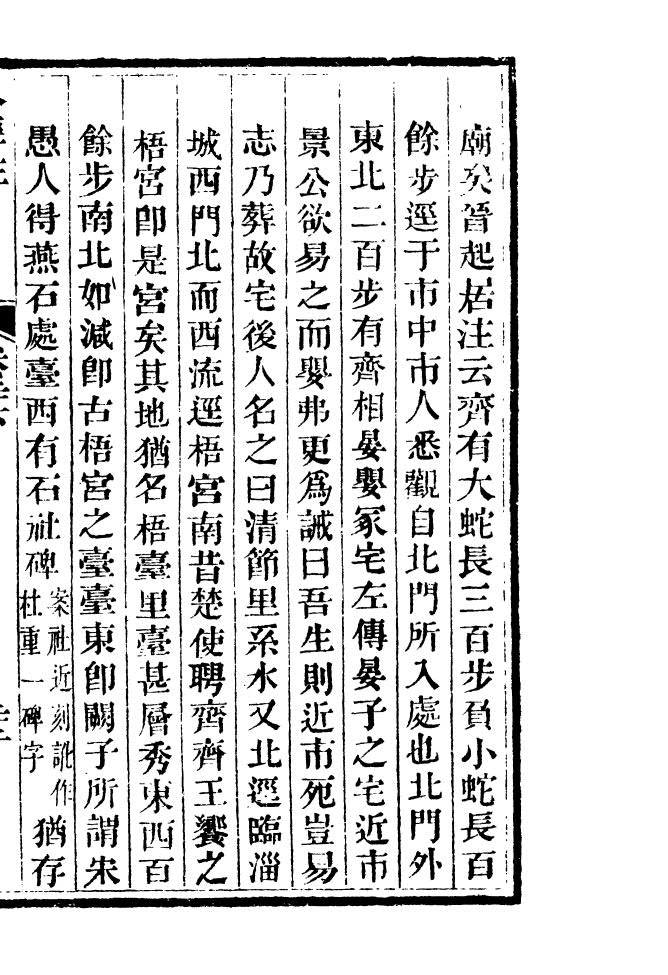 廟矣晉起居注云齊有大蛇長三百步負小蛇長百
餘步逕于市中市人悉觀自北門所入處也北門外
東北二百步有齊相晏嬰冢宅左傳晏子之宅近市
景公欲易之而嬰弗更爲誡曰吾生則近市死豈易
志乃葬故宅後人名之曰清節里系水又北逕臨淄
城西門北而西流逕梧宮南昔楚使聘齊齊王饗之
梧宮卽是宮矣其地猶名梧臺里臺甚層秀東西百
餘步南北如減卽古梧宮之臺臺東卽闕子所謂宋
愚人得燕石處臺西有石社碑案社近刻訛作杜重一碑字猶存